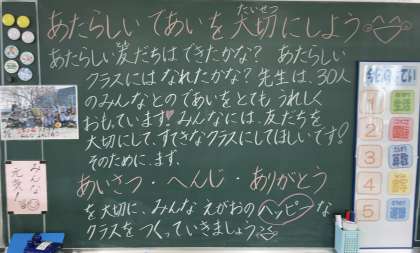 あたらしいであいを大切にしよう
たいせつ
あたらしい友だちはできたかな？ あたらしい
クラスにはなれたかな？先生は、30人
のみんなとのであいをとても うれしく
おもています♥みんなには、友だちを
大切にして、すてきなクラスにしてほしいです!
そのために、まず、
あいさつ・へんじ・ありがとう
を大切に、みんな えがおの ハッピー な
クラスをつくっていきましょう
みんな
元気!
1
2
3
4
5